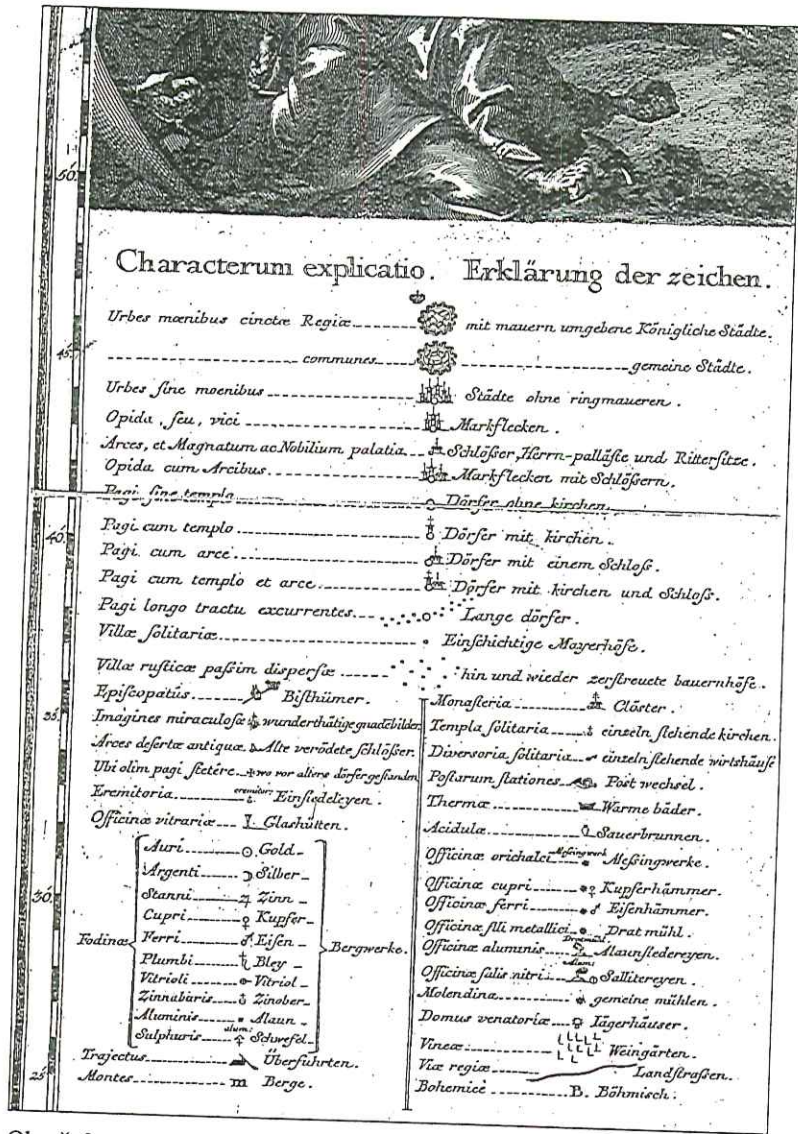 50.
45.
40.
35.
30.
25.
Characterum explicatio. Erklärung der zeichen.
Urbes mœnibus cinctæ Regiæ mit mauern umgebene Königliche Städte.
communes gemeine Städte.
Urbes ſine moenibus Städte ohne ringmaueren.
Opida, ſeu, vici Markflecken.
Arces, et Magnatum ac Nobilium palatia Schlöſzer, Herrn-palläſte und Ritterſitze.
Opida cum Arcibus Markflecken mit Schlöſzern.
Pagi ſine templo Dörfer ohne kirchen.
Pagi cum templo Dörfer mit kirchen.
Pagi cum arce Dörfer mit einem Schloſz.
Pagi cum templo et arce Dörfer mit kirchen und Schloſz.
Pagi longo tractu excurrentes Lange dörfer.
Villæ ſolitariæ Einſchichtige Mayerhöfe.
Villæ ruſticæ paſsim disperſæ hin und wieder zerſtreuete bauernhöfe.
Epiſcopatús Biſthümer.
Imagines miraculoſæ wunderthätige gnadebilder
Arces deſertæ antiquæ Alte verödete ſchlöſzer.
Ubi olim pagi ſtetére wo vor alters dörfer geſtanden
Eremitoria eremitor: Einſiedeleyen.
Officinæ vitrariæ Glashütten.
Fodinæ Bergwerke.
Auri Gold-
Argenti Silber-
Stanni Zinn-
Cupri Kupfer-
Ferri Eiſen-
Plumbi Bley-
Vitrioli Vitriol-
Zinnabaris Zinober-
Aluminis Alaun-
Sulphuris alum: Schwefel-
Trajectus Überfuhrten.
Montes m Berge.
Monaſteria Clöster.
Templa ſolitaria einzeln ſtehende kirchen.
Diverſoria ſolitaria einzeln ſtehende wirtshäuſe
Poſtarum ſtationes Post wechsel.
Thermæ Warme bäder.
Acidulæ Sauerbrunnen.
Officinæ orichalci Meſsingwerk Meſsingwerke.
Officinæ cupri Kupferhämmer.
Officinæ ferri Eiſenhämmer.
Officinæ fili metallici Drat mühl.
Officinæ aluminis Dratmühl Alaunſiedereyen.
Officinæ ſalis nitri Alaun: Sallitereyen.
Molendina gemeine mühlen.
Domus venatoriæ Jägerhäuser.
Vineæ Weingärten.
Viæ regiæ Landſtraſzen.
Bohemicè B. Böhmisch.